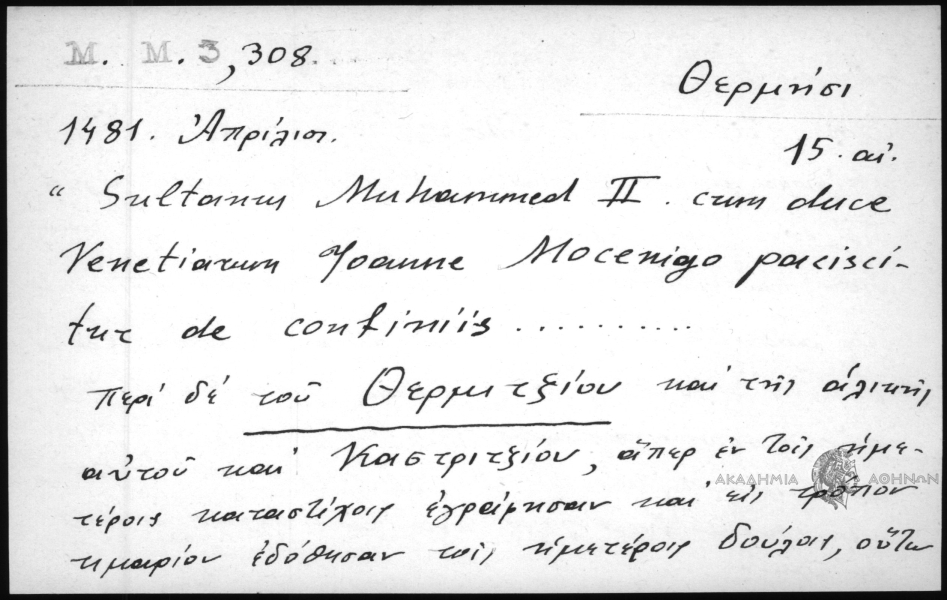 M. M. 3, 308.
Θερμήσι
1481. Ἀπρίλιοι.
15. αἰ.
“ Sultanus Muhammed II. cum duce
Venetiarum Joanne Mocenigo pacisci-
tur de confiniis ..........
περί δέ τοῦ Θερμιτζίου καί τῆς ἁλικῆς
αὐτοῦ καί Καστριτζίου, ἅπερ ἐν τοῖς ἡμε-
ΑΚΑΔΗΜΙΑ ΑΘΗΝΩΝ
τέροις καταστίχοις ἐγράφησαν καί εἰς τρόπον
τιμαρίου ἐδόθησαν τοῖς ἡμετέροις δούλοις, οὕτω